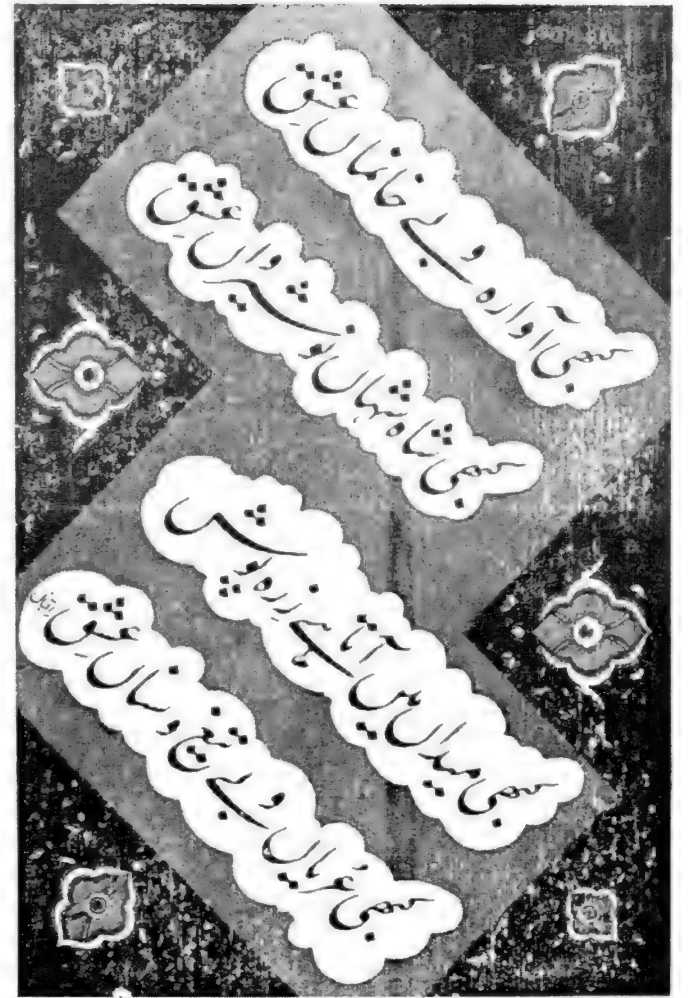 کبھی آوارہ و بے خانماں عشق
کبھی شاہِ شہاں نوشیرواں عشق
کبھی میداں میں آتا ہے زرہ پوش
کبھی عُریاں و بے تیغ و سناں عشق
اقبال